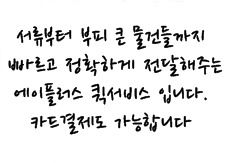 서류부터 부피 큰 물건들까지
빠르고 정확하게 전달해주는
에이플러스 퀵서비스 입니다.
카드결제도 가능합니다